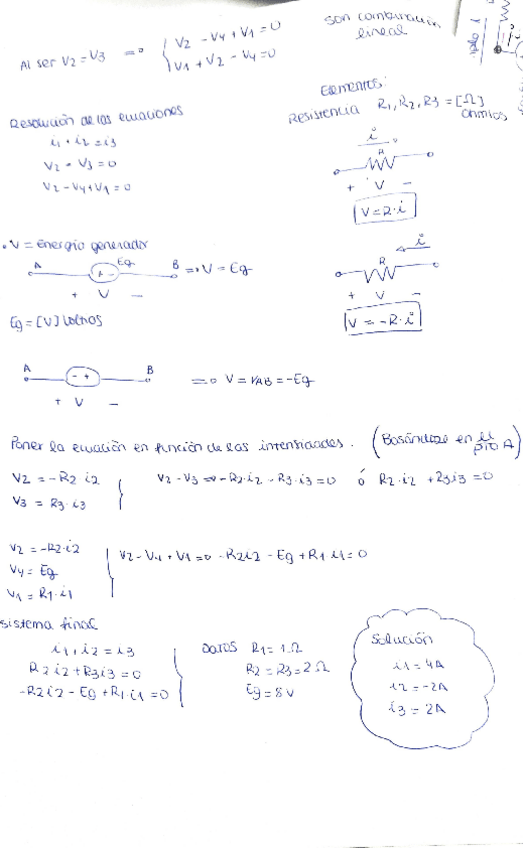 Al ser V2 = V3 => { V2 - V4 + V1 = 0
V1 + V2 - V4 = 0
son combinación
lineal
Resolución de las ecuaciones
i1 + i2 = i3
V2 - V3 = 0
V2 - V4 + V1 = 0
Elementos:
Resistencia R1, R2, R3 = [Ω]
Ohmios
i
R
+ V -
V = R · i
i
R
+ V -
V = -R · i
· V = Energía generador
A Eg B => V = Eg
+ -
+ V -
Eg = [V] Voltios
A B => V = VAB = -Eg
- +
+ V -
Poner la ecuación en función de las intensidades. (Basándose en el
pto A)
V2 = -R2 i2
V3 = R3 · i3
V2 - V3 => -R2 · i2 - R3 · i3 = 0 ó R2 · i2 + R3 i3 = 0
V2 = -R2 · i2
V4 = Eg
V1 = R1 · i1
V2 - V4 + V1 = 0 -R2 i2 - Eg + R1 i1 = 0
Sistema final
i1 + i2 = i3
R2 i2 + R3 i3 = 0
-R2 i2 - Eg + R1 · i1 = 0
DATOS R1 = 1Ω
R2 = R3 = 2Ω
Eg = 8V
Solución
i1 = 4A
i2 = -2A
i3 = 2A